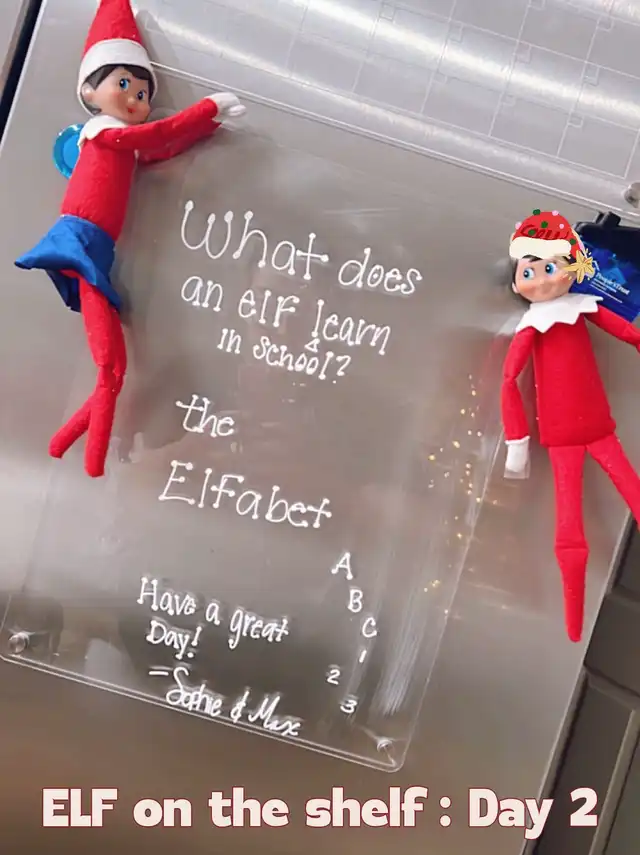 What does
an elf learn
in school?
the
Elfabet
A
B
C
1
2
3
Have a great
Day!
- Sophie & Max
ELF on the shelf : Day 2